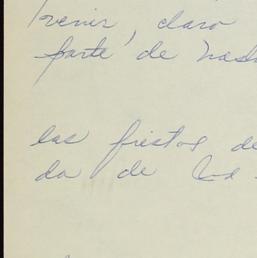 venir, claro
parte, de
las fiestas de
da de los